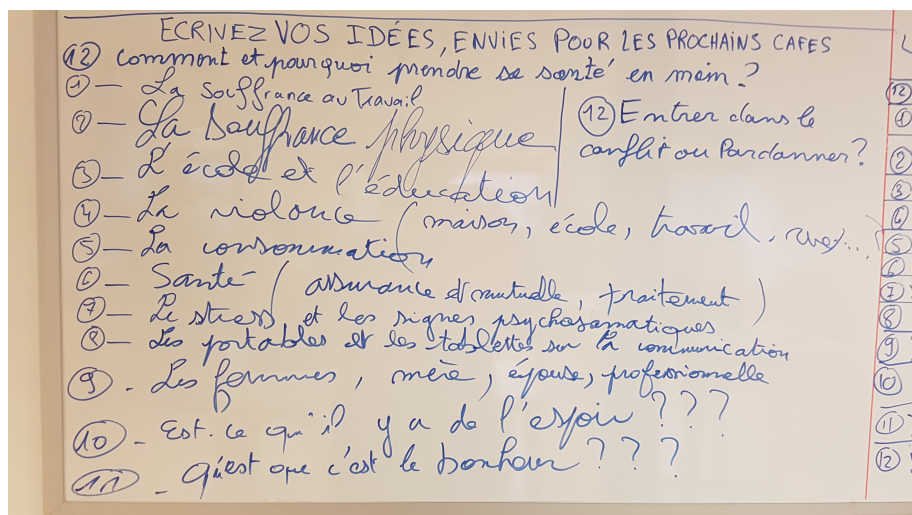 ECRIVEZ VOS IDÉES, ENVIES POUR LES PROCHAINS CAFES
12 comment et pourquoi prendre sa santé en main ?
1 — La Souffrance au Travail
2 — La Souffrance physique
12 Entrer dans le
conflit ou Pardonner ?
3 — L'école et l'éducation
4 — La violence (maison, école, travail, rue...)
5 — La consommation
6 — Santé (assurance et mutuelle, traitement)
7 — Le stress et les signes psychosomatiques
8 — Les portables et les tablettes sur la communication
9 - Les femmes, mère, épouse, professionnelle
10 - Est-ce qu'il y a de l'espoir ???
11 - Qu'est que c'est le bonheur ???
12
1
2
3
4
5
6
7
8
9
10
11
12